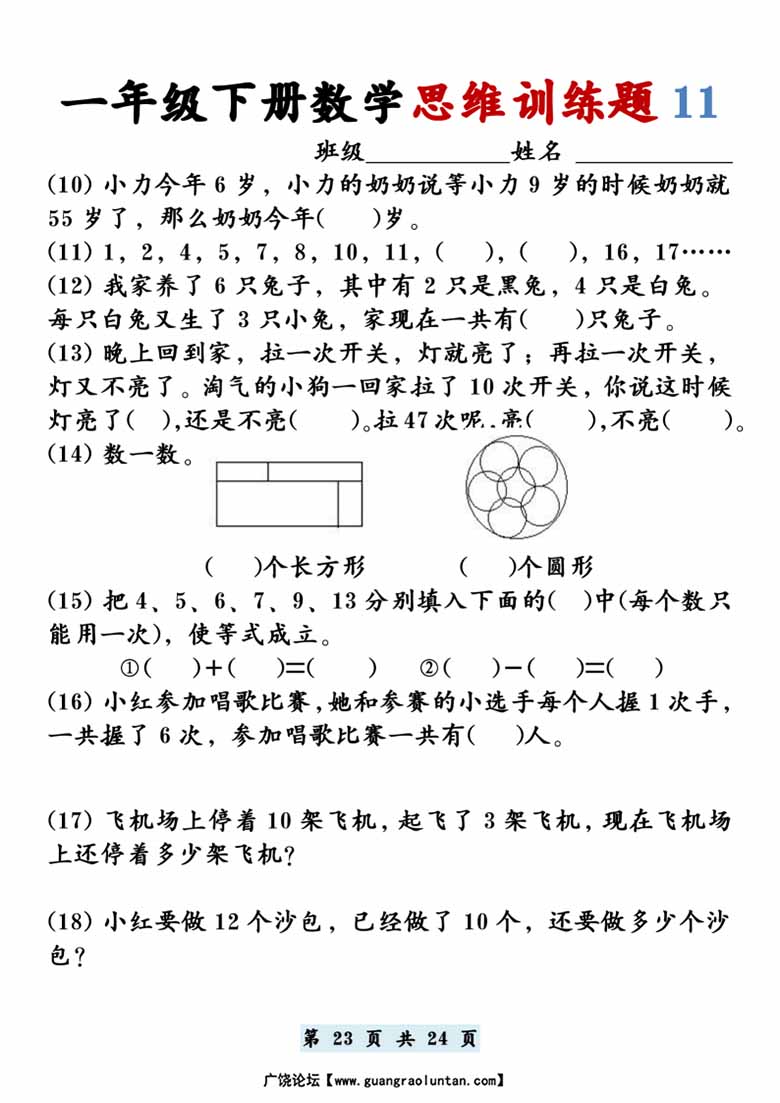 一年级下册数学思维训练题 11
班级____________姓名 ____________
(10) 小力今年 6 岁，小力的奶奶说等小力 9 岁的时候奶奶就
55 岁了，那么奶奶今年(    )岁。
(11) 1，2，4，5，7，8，10，11，(    )，(    )，16，17……
(12) 我家养了 6 只兔子，其中有 2 只是黑兔，4 只是白兔。
每只白兔又生了 3 只小兔，家现在一共有(    )只兔子。
(13) 晚上回到家，拉一次开关，灯就亮了；再拉一次开关，
灯又不亮了。淘气的小狗一回家拉了 10 次开关，你说这时候
灯亮了(    ),还是不亮(    )。拉 47 次呢,亮(    ),不亮(    )。
(14) 数一数。
(    )个长方形 (    )个圆形
(15) 把 4、5、6、7、9、13 分别填入下面的(    )中(每个数只
能用一次)，使等式成立。
①(    )+(    )=(    ) ②(    )−(    )=(    )
(16) 小红参加唱歌比赛,她和参赛的小选手每个人握 1 次手,
一共握了 6 次，参加唱歌比赛一共有(    )人。
(17) 飞机场上停着 10 架飞机,起飞了 3 架飞机,现在飞机场
上还停着多少架飞机?
(18) 小红要做 12 个沙包，已经做了 10 个，还要做多少个沙
包?
第 23 页 共 24 页
广饶论坛【www.guangraoluntan.com】